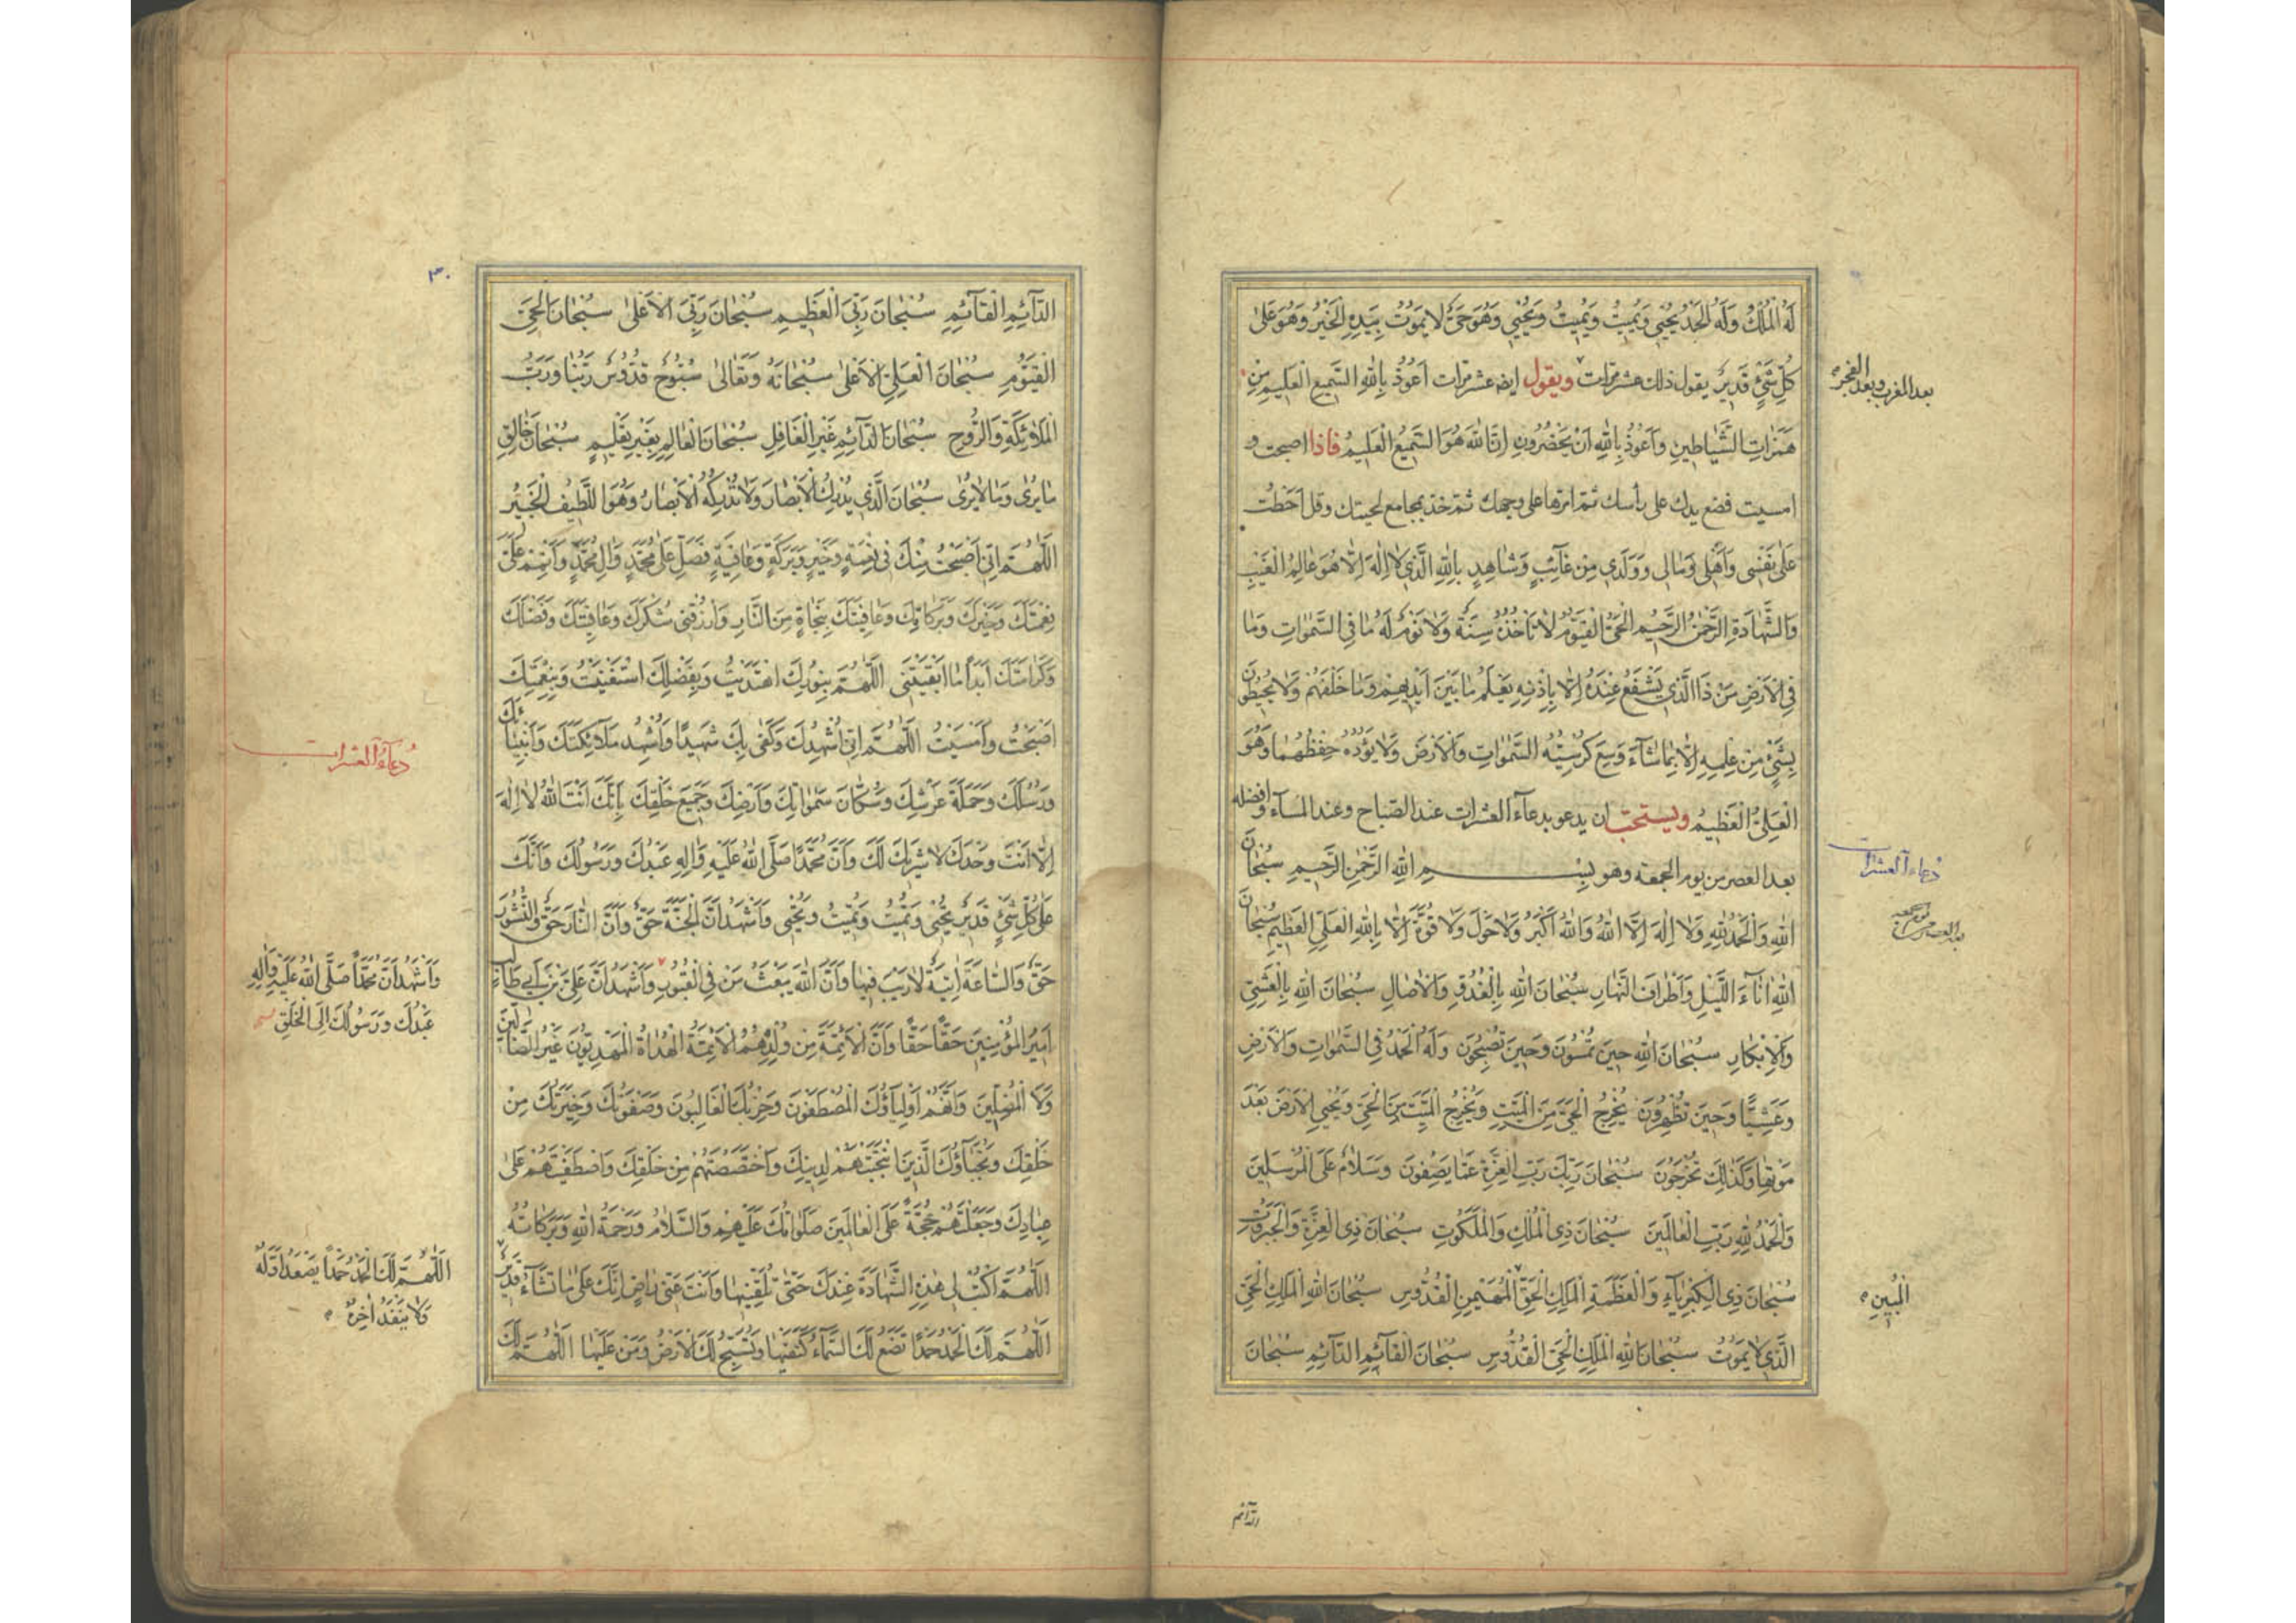 لَهُ الْمُلْكُ وَلَهُ الْحَمْدُ يُحْيِي وَيُمِيتُ وَيُمِيتُ وَيُحْيِي وَهُوَ حَيٌّ لَا يَمُوتُ بِيَدِهِ الْخَيْرُ وَهُوَ عَلَىٰ
كُلِّ شَيْءٍ قَدِيرٌ يقول ذلك عشر مرّات ويقول ايضا عشر مرّات اَعُوذُ بِاللهِ السَّمِيعِ الْعَلِيمِ مِنْ
بعد المغرب وبعد الفجر
هَمَزَاتِ الشَّيَاطِينِ وَاَعُوذُ بِاللهِ اَنْ يَحْضُرُونِ اِنَّ اللهَ هُوَ السَّمِيعُ الْعَلِيمُ فاذا اصبحت و
امسيت فضع يدك على رأسك ثم امرّها على وجهك ثم خذ بمجامع لحيتك وقل اَحَطْتُ
عَلَىٰ نَفْسِي وَاَهْلِي وَمَالِي وَوَلَدِي مِنْ غَائِبٍ وَشَاهِدٍ بِاللهِ الَّذِي لَا اِلٰهَ اِلَّا هُوَ عَالِمُ الْغَيْبِ
وَالشَّهَادَةِ الرَّحْمٰنُ الرَّحِيمُ الْحَيُّ الْقَيُّومُ لَا تَأْخُذُهُ سِنَةٌ وَلَا نَوْمٌ لَهُ مَا فِي السَّمٰوَاتِ وَمَا
فِي الْاَرْضِ مَنْ ذَا الَّذِي يَشْفَعُ عِنْدَهُ اِلَّا بِاِذْنِهِ يَعْلَمُ مَا بَيْنَ اَيْدِيهِمْ وَمَا خَلْفَهُمْ وَلَا يُحِيطُونَ
بِشَيْءٍ مِنْ عِلْمِهِ اِلَّا بِمَا شَاءَ وَسِعَ كُرْسِيُّهُ السَّمٰوَاتِ وَالْاَرْضَ وَلَا يَؤُدُهُ حِفْظُهُمَا وَهُوَ
الْعَلِيُّ الْعَظِيمُ ويستحبّ ان يدعو بدعاء العشرات عند الصّباح وعند المساء وافضله
دعاء العشرات
بعد العصر من يوم الجمعة وهو بِسْمِ اللهِ الرَّحْمٰنِ الرَّحِيمِ سُبْحَانَ
بعد العصر من يوم جمعه
اللهِ وَالْحَمْدُ لِلهِ وَلَا اِلٰهَ اِلَّا اللهُ وَاللهُ اَكْبَرُ وَلَا حَوْلَ وَلَا قُوَّةَ اِلَّا بِاللهِ الْعَلِيِّ الْعَظِيمِ سُبْحَانَ
اللهِ اٰنَاءَ اللَّيْلِ وَاَطْرَافَ النَّهَارِ سُبْحَانَ اللهِ بِالْغُدُوِّ وَالْاٰصَالِ سُبْحَانَ اللهِ بِالْعَشِيِّ
وَالْاِبْكَارِ سُبْحَانَ اللهِ حِينَ تُمْسُونَ وَحِينَ تُصْبِحُونَ وَلَهُ الْحَمْدُ فِي السَّمٰوَاتِ وَالْاَرْضِ
وَعَشِيًّا وَحِينَ تُظْهِرُونَ يُخْرِجُ الْحَيَّ مِنَ الْمَيِّتِ وَيُخْرِجُ الْمَيِّتَ مِنَ الْحَيِّ وَيُحْيِي الْاَرْضَ بَعْدَ
مَوْتِهَا وَكَذٰلِكَ تُخْرَجُونَ سُبْحَانَ رَبِّكَ رَبِّ الْعِزَّةِ عَمَّا يَصِفُونَ وَسَلَامٌ عَلَى الْمُرْسَلِينَ
وَالْحَمْدُ لِلهِ رَبِّ الْعَالَمِينَ سُبْحَانَ ذِي الْمُلْكِ وَالْمَلَكُوتِ سُبْحَانَ ذِي الْعِزَّةِ وَالْجَبَرُوتِ
سُبْحَانَ ذِي الْكِبْرِيَاءِ وَالْعَظَمَةِ الْمَلِكِ الْحَقِّ الْمُهَيْمِنِ الْقُدُّوسِ سُبْحَانَ اللهِ الْمَلِكِ الْحَيِّ
الْمُبِينِ
الَّذِي لَا يَمُوتُ سُبْحَانَ اللهِ الْمَلِكِ الْحَيِّ الْقُدُّوسِ سُبْحَانَ الْقَائِمِ الدَّائِمِ سُبْحَانَ
الدّائم
٣٠
الدَّائِمِ الْقَائِمِ سُبْحَانَ رَبِّيَ الْعَظِيمِ سُبْحَانَ رَبِّيَ الْاَعْلَىٰ سُبْحَانَ الْحَيِّ
الْقَيُّومِ سُبْحَانَ الْعَلِيِّ الْاَعْلَىٰ سُبْحَانَهُ وَتَعَالَىٰ سُبُّوحٌ قُدُّوسٌ رَبُّنَا وَرَبُّ
الْمَلَائِكَةِ وَالرُّوحِ سُبْحَانَ الدَّائِمِ غَيْرِ الْغَافِلِ سُبْحَانَ الْعَالِمِ بِغَيْرِ تَعْلِيمٍ سُبْحَانَ خَالِقِ
مَا يُرَىٰ وَمَا لَا يُرَىٰ سُبْحَانَ الَّذِي يُدْرِكُ الْاَبْصَارَ وَلَا تُدْرِكُهُ الْاَبْصَارُ وَهُوَ اللَّطِيفُ الْخَبِيرُ
اَللّٰهُمَّ اِنِّي اَصْبَحْتُ مِنْكَ فِي نِعْمَةٍ وَخَيْرٍ وَبَرَكَةٍ وَعَافِيَةٍ فَصَلِّ عَلَىٰ مُحَمَّدٍ وَاٰلِ مُحَمَّدٍ وَاَتْمِمْ عَلَيَّ
نِعْمَتَكَ وَخَيْرَكَ وَبَرَكَاتِكَ وَعَافِيَتَكَ بِنَجَاةٍ مِنَ النَّارِ وَارْزُقْنِي شُكْرَكَ وَعَافِيَتَكَ وَفَضْلَكَ
وَكَرَامَتَكَ اَبَدًا مَا اَبْقَيْتَنِي اَللّٰهُمَّ بِنُورِكَ اهْتَدَيْتُ وَبِفَضْلِكَ اسْتَغْنَيْتُ وَبِنِعْمَتِكَ
اَصْبَحْتُ وَاَمْسَيْتُ اَللّٰهُمَّ اِنِّي اُشْهِدُكَ وَكَفَىٰ بِكَ شَهِيدًا وَاُشْهِدُ مَلَائِكَتَكَ وَاَنْبِيَائَكَ
دعاء العشرات
وَرُسُلَكَ وَحَمَلَةَ عَرْشِكَ وَسُكَّانَ سَمٰوَاتِكَ وَاَرْضِكَ وَجَمِيعَ خَلْقِكَ بِاَنَّكَ اَنْتَ اللهُ لَا اِلٰهَ
اِلَّا اَنْتَ وَحْدَكَ لَا شَرِيكَ لَكَ وَاَنَّ مُحَمَّدًا صَلَّى اللهُ عَلَيْهِ وَاٰلِهِ عَبْدُكَ وَرَسُولُكَ وَاَنَّكَ
عَلَىٰ كُلِّ شَيْءٍ قَدِيرٌ تُحْيِي وَتُمِيتُ وَتُمِيتُ وَتُحْيِي وَاَشْهَدُ اَنَّ الْجَنَّةَ حَقٌّ وَاَنَّ النَّارَ حَقٌّ وَالنُّشُورَ
حَقٌّ وَالسَّاعَةَ اٰتِيَةٌ لَا رَيْبَ فِيهَا وَاَنَّ اللهَ يَبْعَثُ مَنْ فِي الْقُبُورِ وَاَشْهَدُ اَنَّ عَلِيَّ بْنَ اَبِي طَالِبٍ
وَاَشْهَدُ اَنَّ مُحَمَّدًا صَلَّى اللهُ عَلَيْهِ وَاٰلِهِ
عَبْدُكَ وَرَسُولُكَ اِلَى الْخَلْقِ
اَمِيرُ الْمُؤْمِنِينَ حَقًّا حَقًّا وَاَنَّ الْاَئِمَّةَ مِنْ وُلْدِهِ هُمُ الْاَئِمَّةُ الْهُدَاةُ الْمَهْدِيُّونَ غَيْرُ الضَّالِّينَ
وَلَا الْمُضِلِّينَ وَاَنَّهُمْ اَوْلِيَاؤُكَ الْمُصْطَفَوْنَ وَحِزْبُكَ الْغَالِبُونَ وَصَفْوَتُكَ وَخِيَرَتُكَ مِنْ
خَلْقِكَ وَنُجَبَاؤُكَ الَّذِينَ انْتَجَبْتَهُمْ لِدِينِكَ وَاخْتَصَصْتَهُمْ مِنْ خَلْقِكَ وَاصْطَفَيْتَهُمْ عَلَىٰ
عِبَادِكَ وَجَعَلْتَهُمْ حُجَّةً عَلَى الْعَالَمِينَ صَلَوَاتُكَ عَلَيْهِمْ وَالسَّلَامُ وَرَحْمَةُ اللهِ وَبَرَكَاتُهُ
اَللّٰهُمَّ اكْتُبْ لِي هٰذِهِ الشَّهَادَةَ عِنْدَكَ حَتَّىٰ تُلَقِّنِيهَا وَاَنْتَ عَنِّي رَاضٍ اِنَّكَ عَلَىٰ مَا تَشَاءُ قَدِيرٌ
اَللّٰهُمَّ لَكَ الْحَمْدُ حَمْدًا يَصْعَدُ اَوَّلُهُ
وَلَا يَنْفَدُ اٰخِرُهُ
اَللّٰهُمَّ لَكَ الْحَمْدُ حَمْدًا تَضَعُ لَكَ السَّمَاءُ كَنَفَيْهَا وَتُسَبِّحُ لَكَ الْاَرْضُ وَمَنْ عَلَيْهَا اَللّٰهُمَّ لَكَ